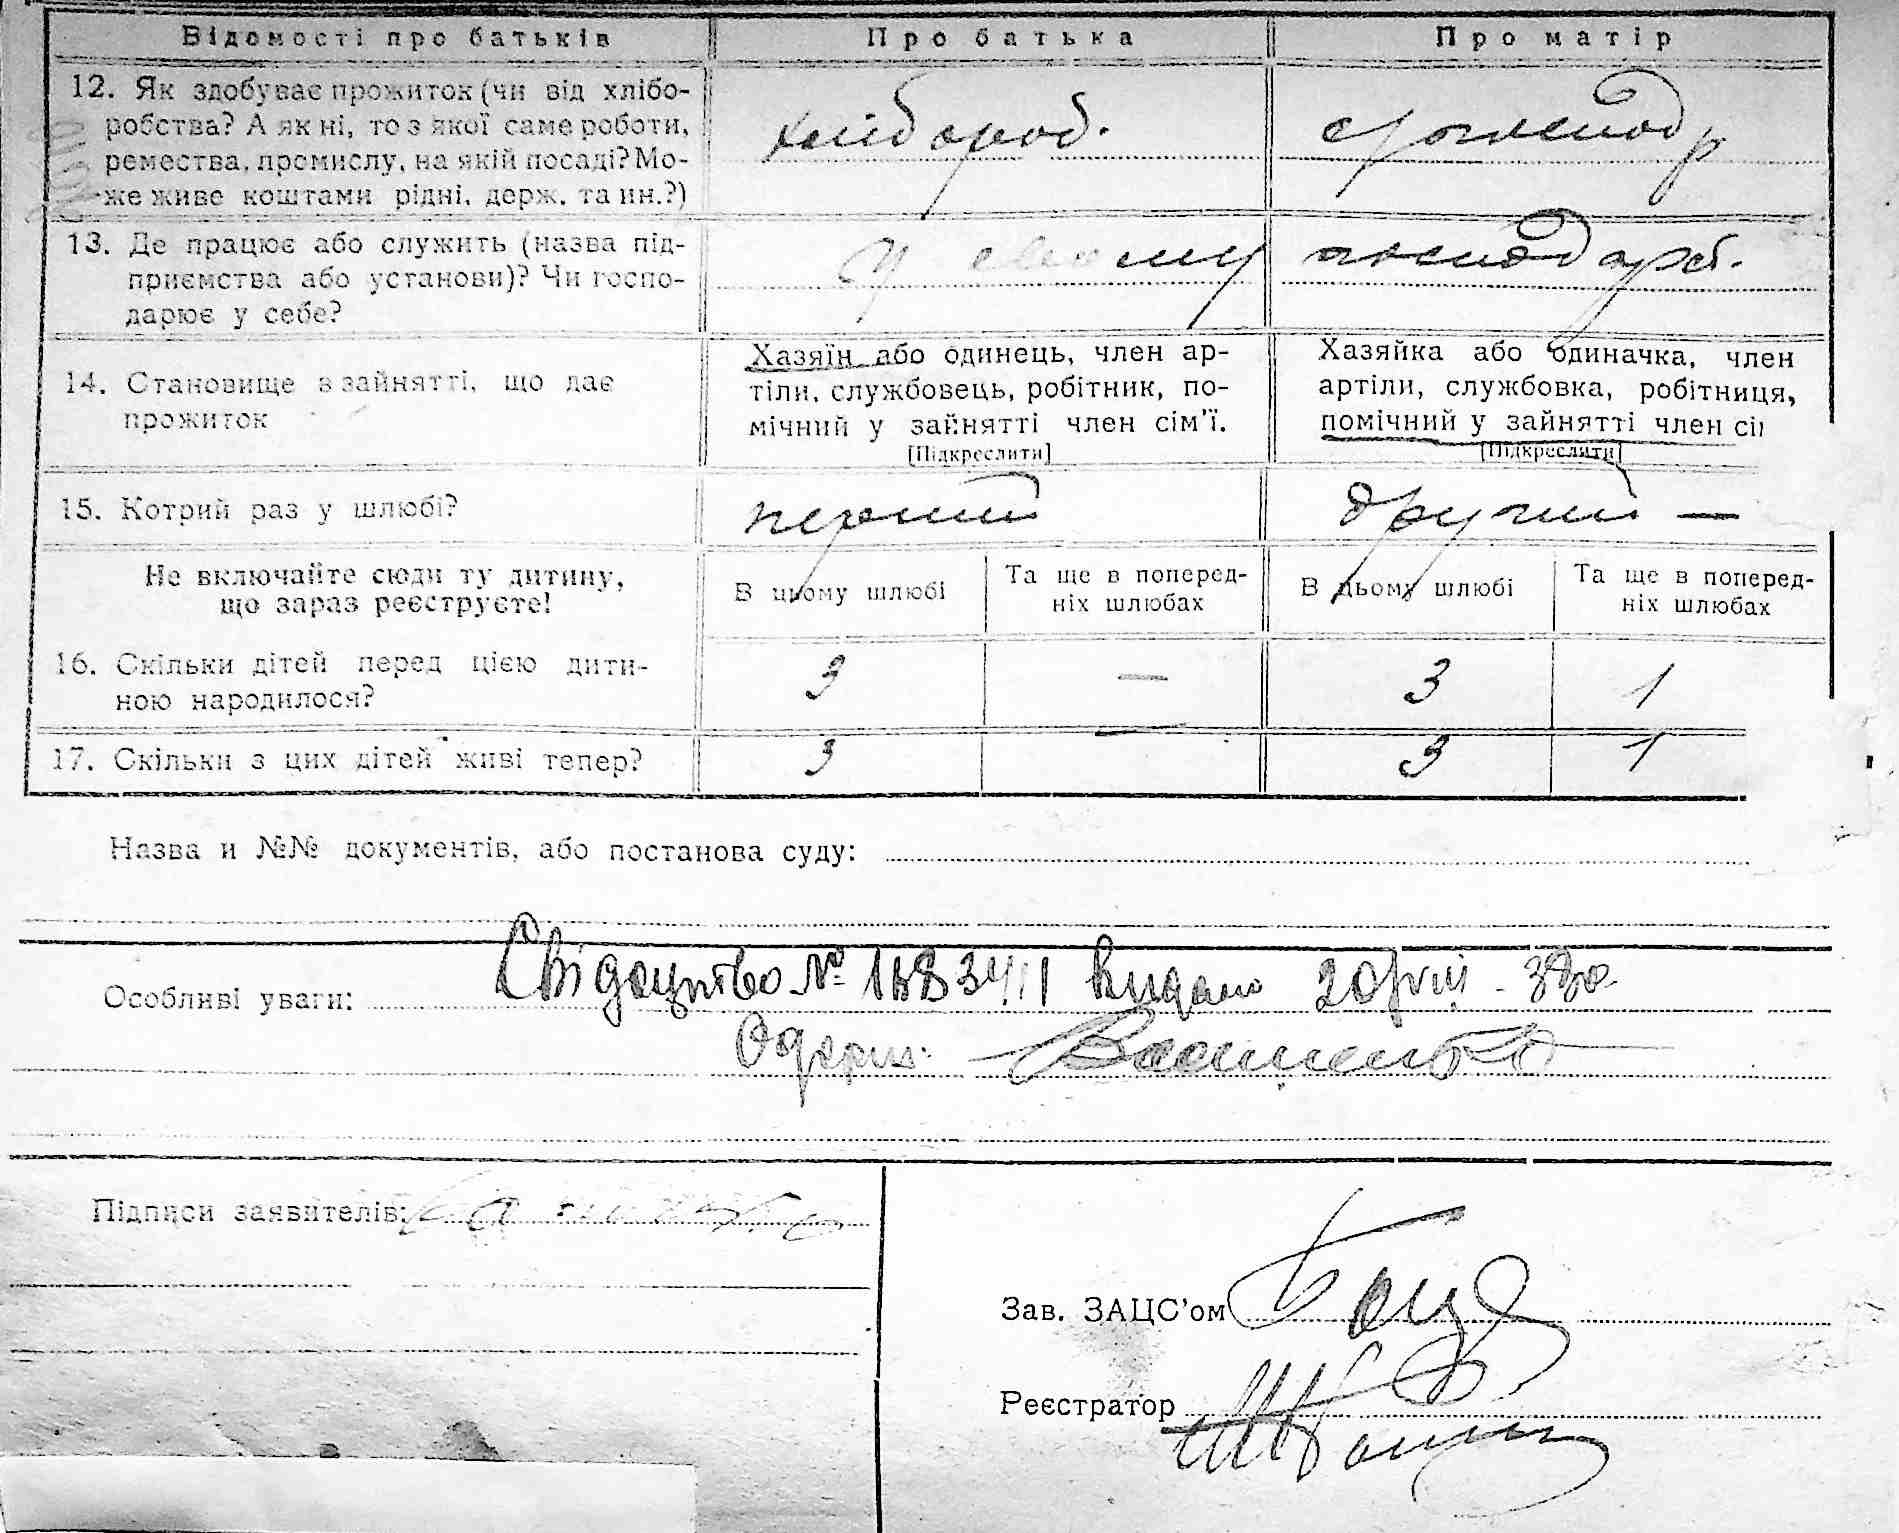 Відомості про батьків Про батька Про матір
12. Як здобуває прожиток (чи від хлібо-
робства? А як ні, то з якої саме роботи,
ремества, промислу, на якій посаді? Мо-
же живе коштами рідні, держ. та ин.?)
хлібороб.
13. Де працює або служить (назва під-
приємства або установи)? Чи госпо-
дарює у себе?
у свому господарст.
14. Становище в зайнятті, що дає
прожиток
Хазяїн або одинець, член ар-
тіли, службовець, робітник, по-
мічний у зайнятті член сім'ї.
[Підкреслити]
Хазяйка або одиначка, член
артіли, службовка, робітниця,
помічний у зайнятті член сі
[Підкреслити]
15. Котрий раз у шлюбі? перший другий —
Не включайте сюди ту дитину,
що зараз реєструєте!
В цьому шлюбі
Та ще в поперед-
ніх шлюбах
В цьому шлюбі
Та ще в поперед-
ніх шлюбах
16. Скільки дітей перед цією дити-
ною народилося?
3 — 3 1
17. Скільки з цих дітей живі тепер? 3 — 3 1
Назва и №№ документів, або постанова суду:
Особливі уваги: Свідоцтво № видано
Одерж.
Підписи заявителів:
Зав. ЗАЦС'ом
Реєстратор